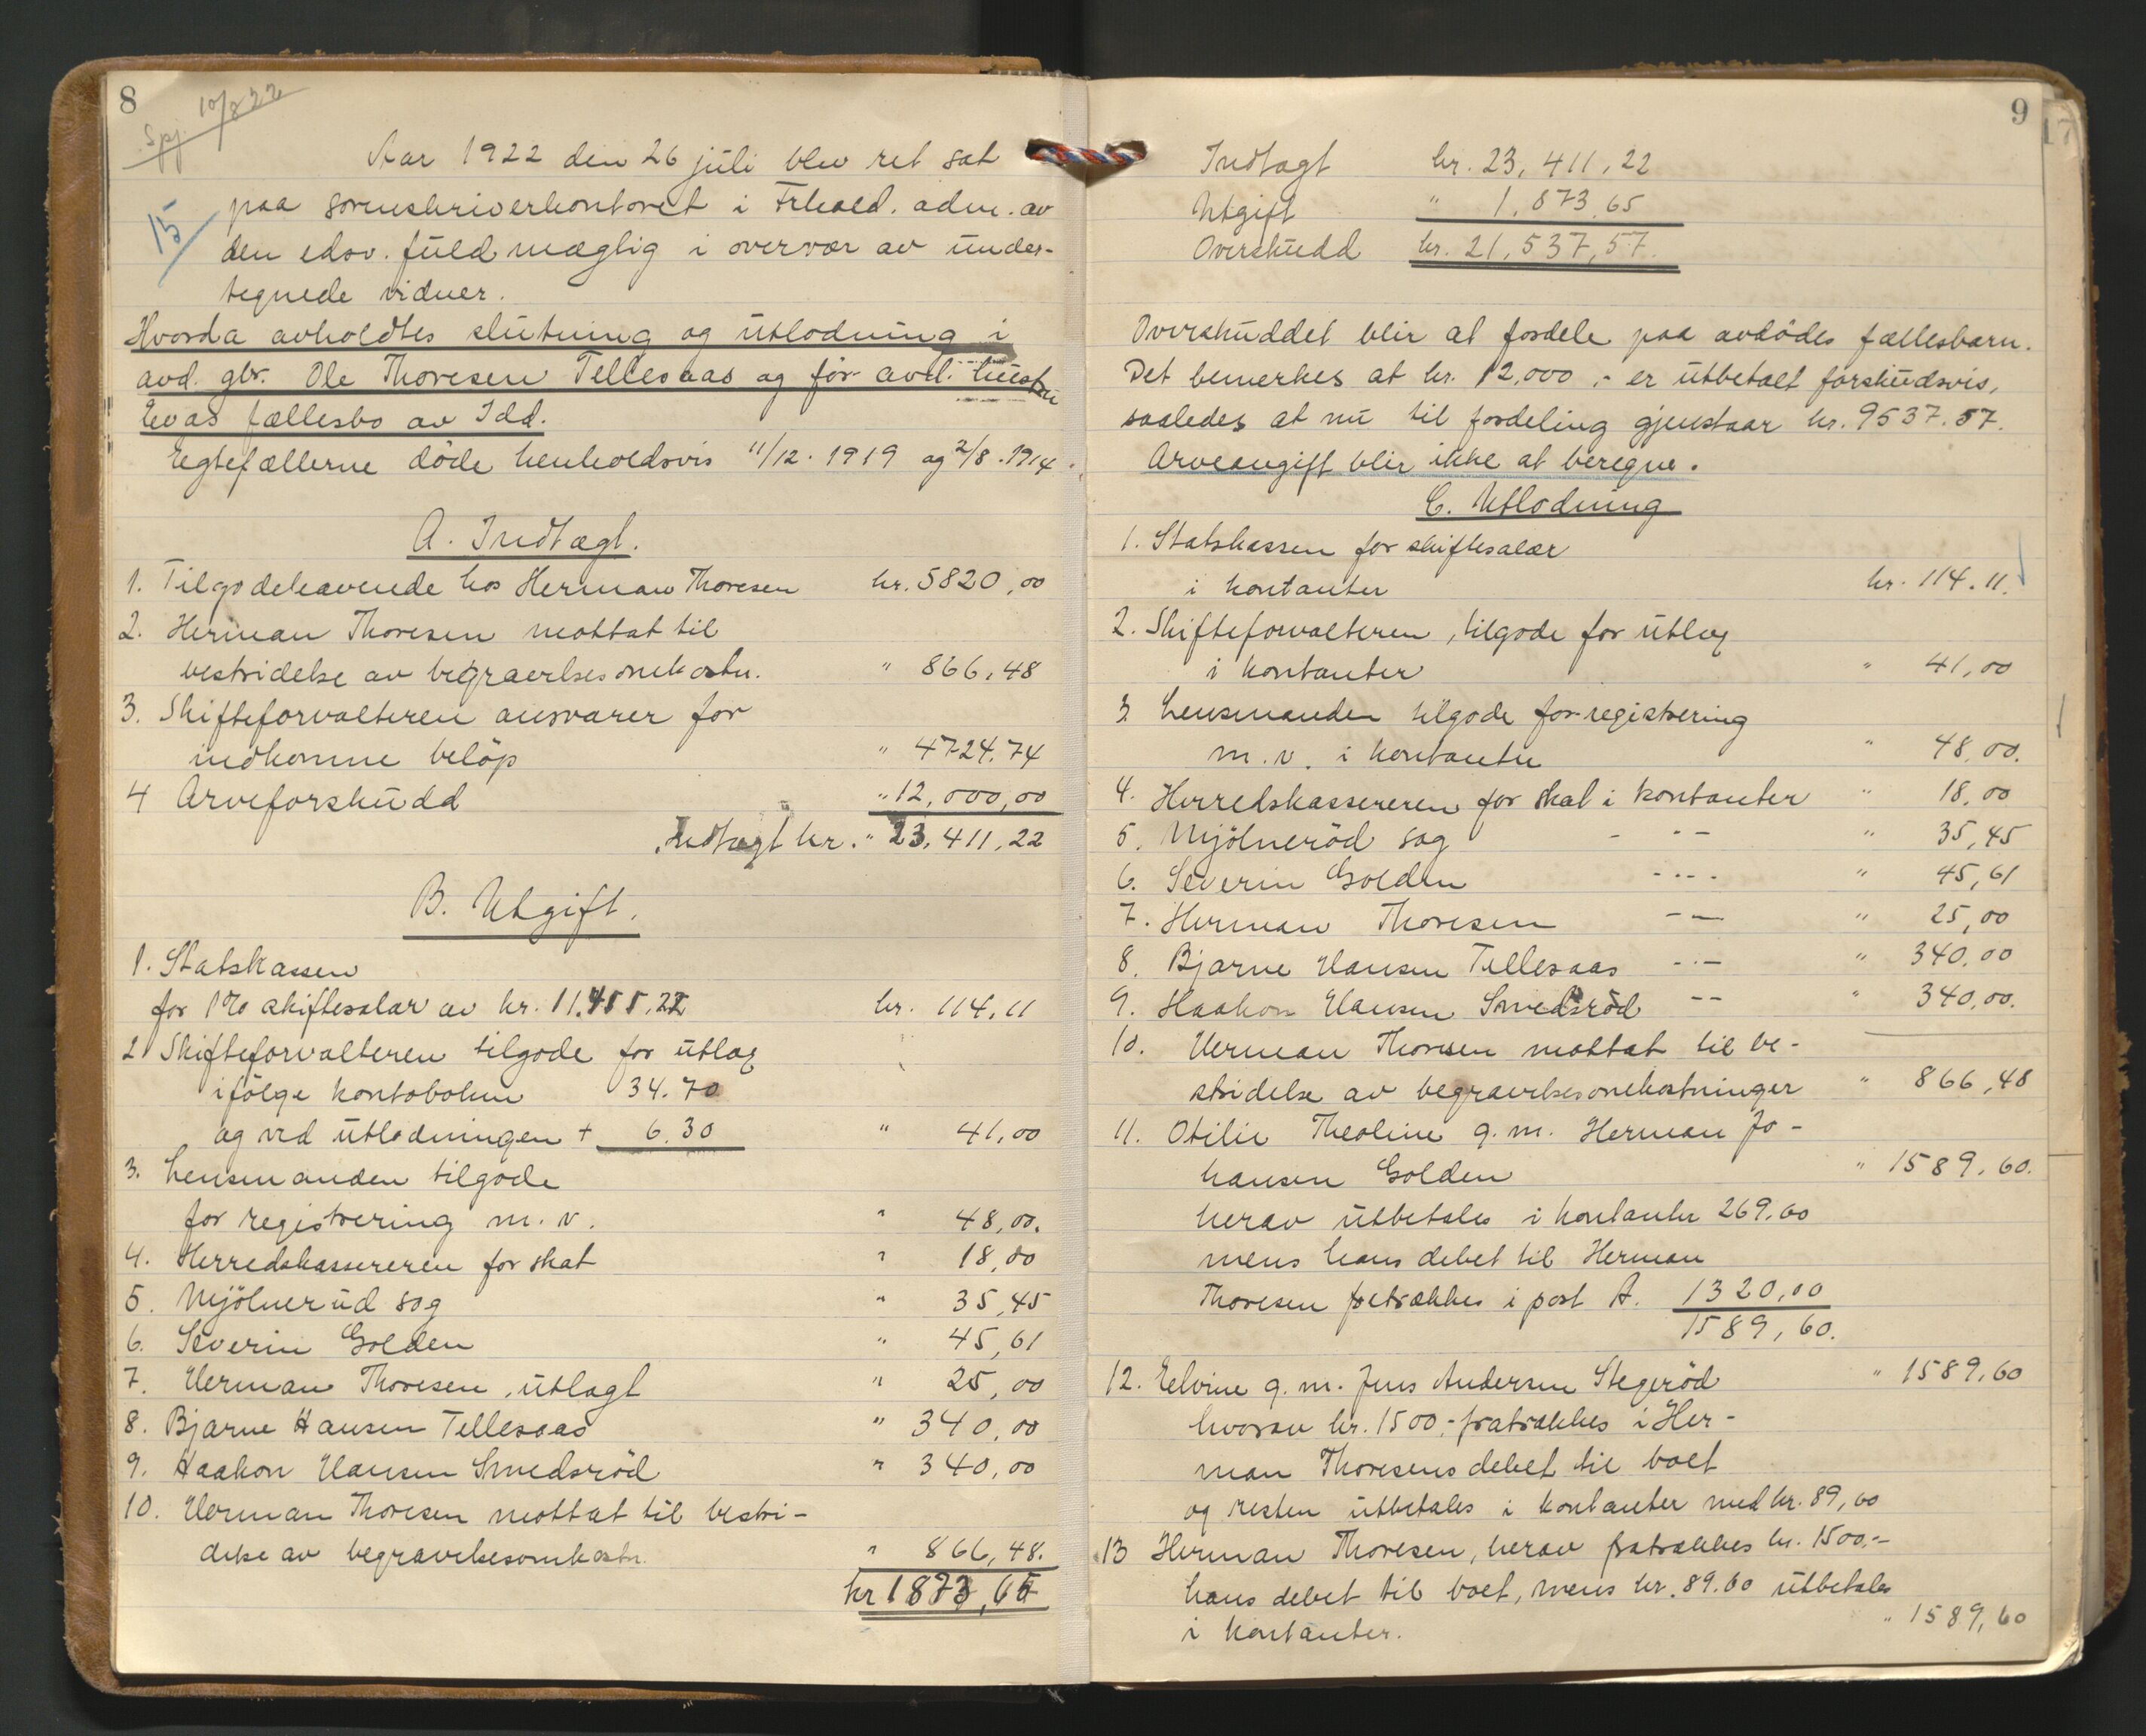 8
Spj. 10/8 22
15
Aar 1922 den 26 juli blev ret sat
paa sorenskriverkontoret i Frhald. adm. av
den edsv. fuldmægtig i overvær av under-
tegnede vidner.
Hvorda avholdtes slutning og utlodning i
avd. gbr. Ole Thoresen Tellesaas og før avd. hustru
Evas fællesbo av Idd.
Egtefællerne døde henholdsvis 11/12. 1919 og 2/8. 1914.
A. Indtægt.
1. Tilgodehavende hos Herman Thoresen kr. 5820,00
2. Herman Thoresen mottat til
bestridelse av begravelsesomkostn. " 866,48
3. Skifteforvalteren ansvarer for
indkomne beløp " 4724.74
4 Arveforskudd " 12,000,00
Indtægt kr. " 23,411,22
B. Utgift.
1. Statskassen
for 1% skiftesalær av kr. 11.411.22 kr. 114,11
2 Skifteforvalteren tilgode for utlæg
ifølge kontoboken 34.70
og ved utlodningen + 6.30 " 41,00
3. Lensmanden tilgode
for registrering m. v. " 48,00.
4. Herredskassereren for skat " 18,00
5. Mjölnerud sag " 35,45
6. Severin Golden " 45,61
7. Herman Thoresen, utlagt " 25,00
8. Bjarne Hansen Tellesaas " 340,00
9. Haakon Hansen Smedsröd " 340,00
10. Herman Thoresen mottat til bestri-
delse av begravelsesomkostn. " 866,48.
kr 1873,65
9
17
Indtægt kr. 23,411,22
Utgift " 1,873,65
Overskudd kr. 21,537,57.
Overskuddet blir at fordele paa avdødes fællesbarn.
Det bemerkes at kr. 12,000,- er utbetalt forskudsvis,
saaledes at nu til fordeling gjenstaar kr. 9537.57.
Arveavgift blir ikke at beregne.
C. Utlodning
1. Statskassen for skiftesalær
i kontanter kr. 114.11.
2. Skifteforvalteren, tilgode for utlæg
i kontanter " 41,00
3 Lensmanden tilgode for registrering
m. v. i kontanter " 48,00.
4. Herredskassereren for skat i kontanter " 18,00
5. Mjölneröd sag - " - " 35,45
6. Severin Golden - " - " 45,61
7. Herman Thoresen - " - " 25,00
8. Bjarne Hansen Tellesaas - " - " 340,00
9. Haakon Hansen Smedsröd - " - " 340,00.
10. Herman Thoresen mottat til be-
stridelse av begravelsesomkostninger " 866,48
11. Otilie Theoline g. m. Herman Jo-
hansen Golden " 1589,60.
herav utbetales i kontanter 269.60
mens hans debet til Herman
Thoresen fratrækkes i post A. 1320,00
1589,60.
12. Elvine g. m. Jens Andersen Stegeröd " 1589,60
hvorav kr. 1500,- fratrækkes i Her-
man Thoresens debet til boet
og resten utbetales i kontanter med kr. 89,60
13 Herman Thoresen, herav fratrækkes kr. 1500.-
hans debet til boet, mens kr. 89.60 utbetales
i kontanter. " 1589,60